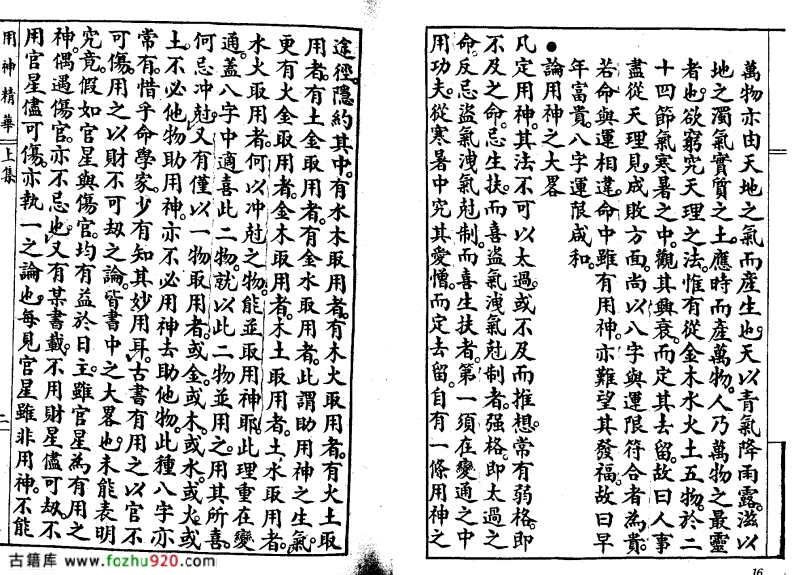 萬物亦由天地之氣而產生也。天以青氣降雨露。滋以
地之濁氣實質之土。應時而產萬物。人乃萬物之最靈
者也。欲窮究天理之法。惟有從金木水火土五物。於二
十四節氣寒暑之中。觀其興衰。而定其去留。故曰人事
盡從天理見。成敗方面。尚以八字與運限符合者為貴。
若命與運相違。命中雖有用神。亦難望其發福。故曰早
年富貴八字運限咸和。
●論用神之大畧
凡定用神。其法不可以太過。或不及而推想。常有弱格。即
不及之命。忌生扶。而喜盜氣洩氣尅制者。强格。即太過之
命。反忌盜氣洩氣尅制。而喜生扶者。第一須在變通之中
用功夫。從寒暑中究其愛憎。而定去留。自有一條用神之
途徑。隱約其中。有水木取用者。有木火取用者。有火土取
用者。有土金取用者。有金水取用者。此謂助用神之生氣。
更有火金取用者。金木取用者。木土取用者。土水取用者。
水火取用者。何以冲尅之物。能並取用神耶。此理重在變
通。蓋八字中適喜此二物。就以此二物並用之。用其所喜。
何忌冲尅。又有僅以一物取用者。或金。或木。或水。或火。或
土。不必他物助用神。亦不必用神去助他物。此種八字亦
常有。惜乎命學家少有知其妙用耳。古書有用之以官不
可傷。用之以財不可刼之論。皆書中之大畧也。未能表明
究竟。假如官星與傷官。均有益於日主。雖官星為有用之
神。偶遇傷官。亦不忌也。又有某書載。不用財星儘可刼。不
用官星儘可傷。亦執一之論也。每見官星雖非用神。不能
用神精華 上集
二
16
古籍库 www.fozhu920.com